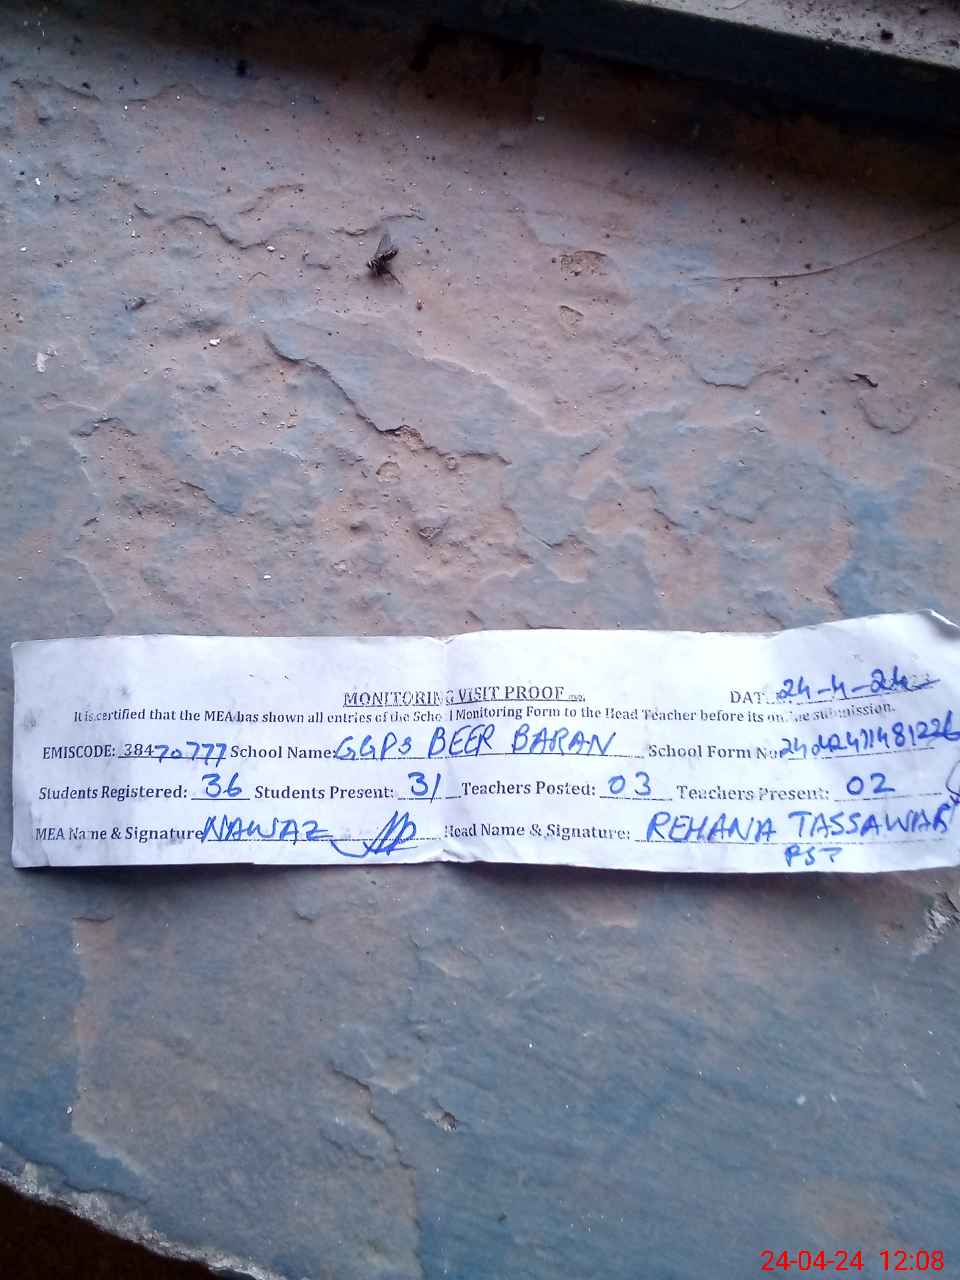 MONITORING VISIT PROOF
DAT 24-4-24
It is certified that the MEA has shown all entries of the School Monitoring Form to the Head Teacher before its on-line submission.
EMISCODE: 38470777 School Name: GGPS BEER BARAN School Form No
Students Registered: 36 Students Present: 31 Teachers Posted: 03 Teachers Present: 02
MEA Name & Signature NAWAZ Head Name & Signature: REHANA TASSAWAR
PST
24-04-24 12:08